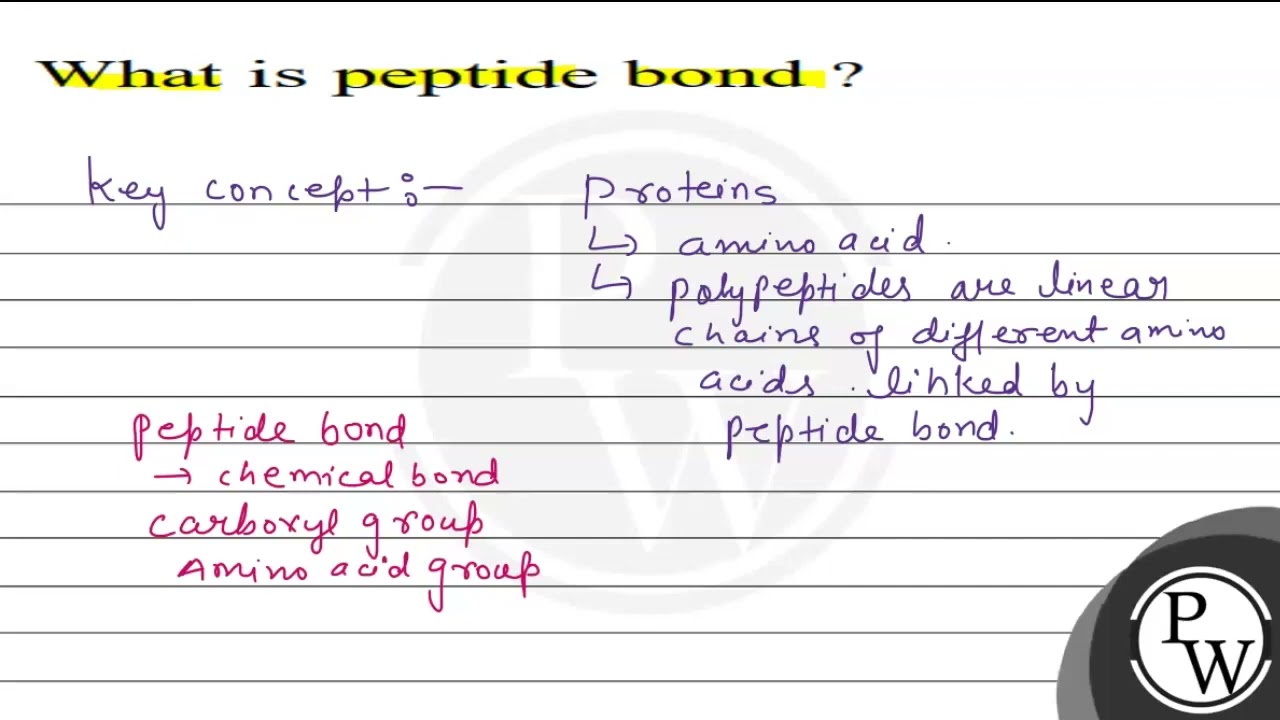 What is peptide bond ?
Key concept :-
Proteins
↳ amino acid.
↳ polypeptides are linear
chains of different amino
acids . linked by
peptide bond.
peptide bond
→ chemical bond
carboxyl group
Amino acid group
PW
PW